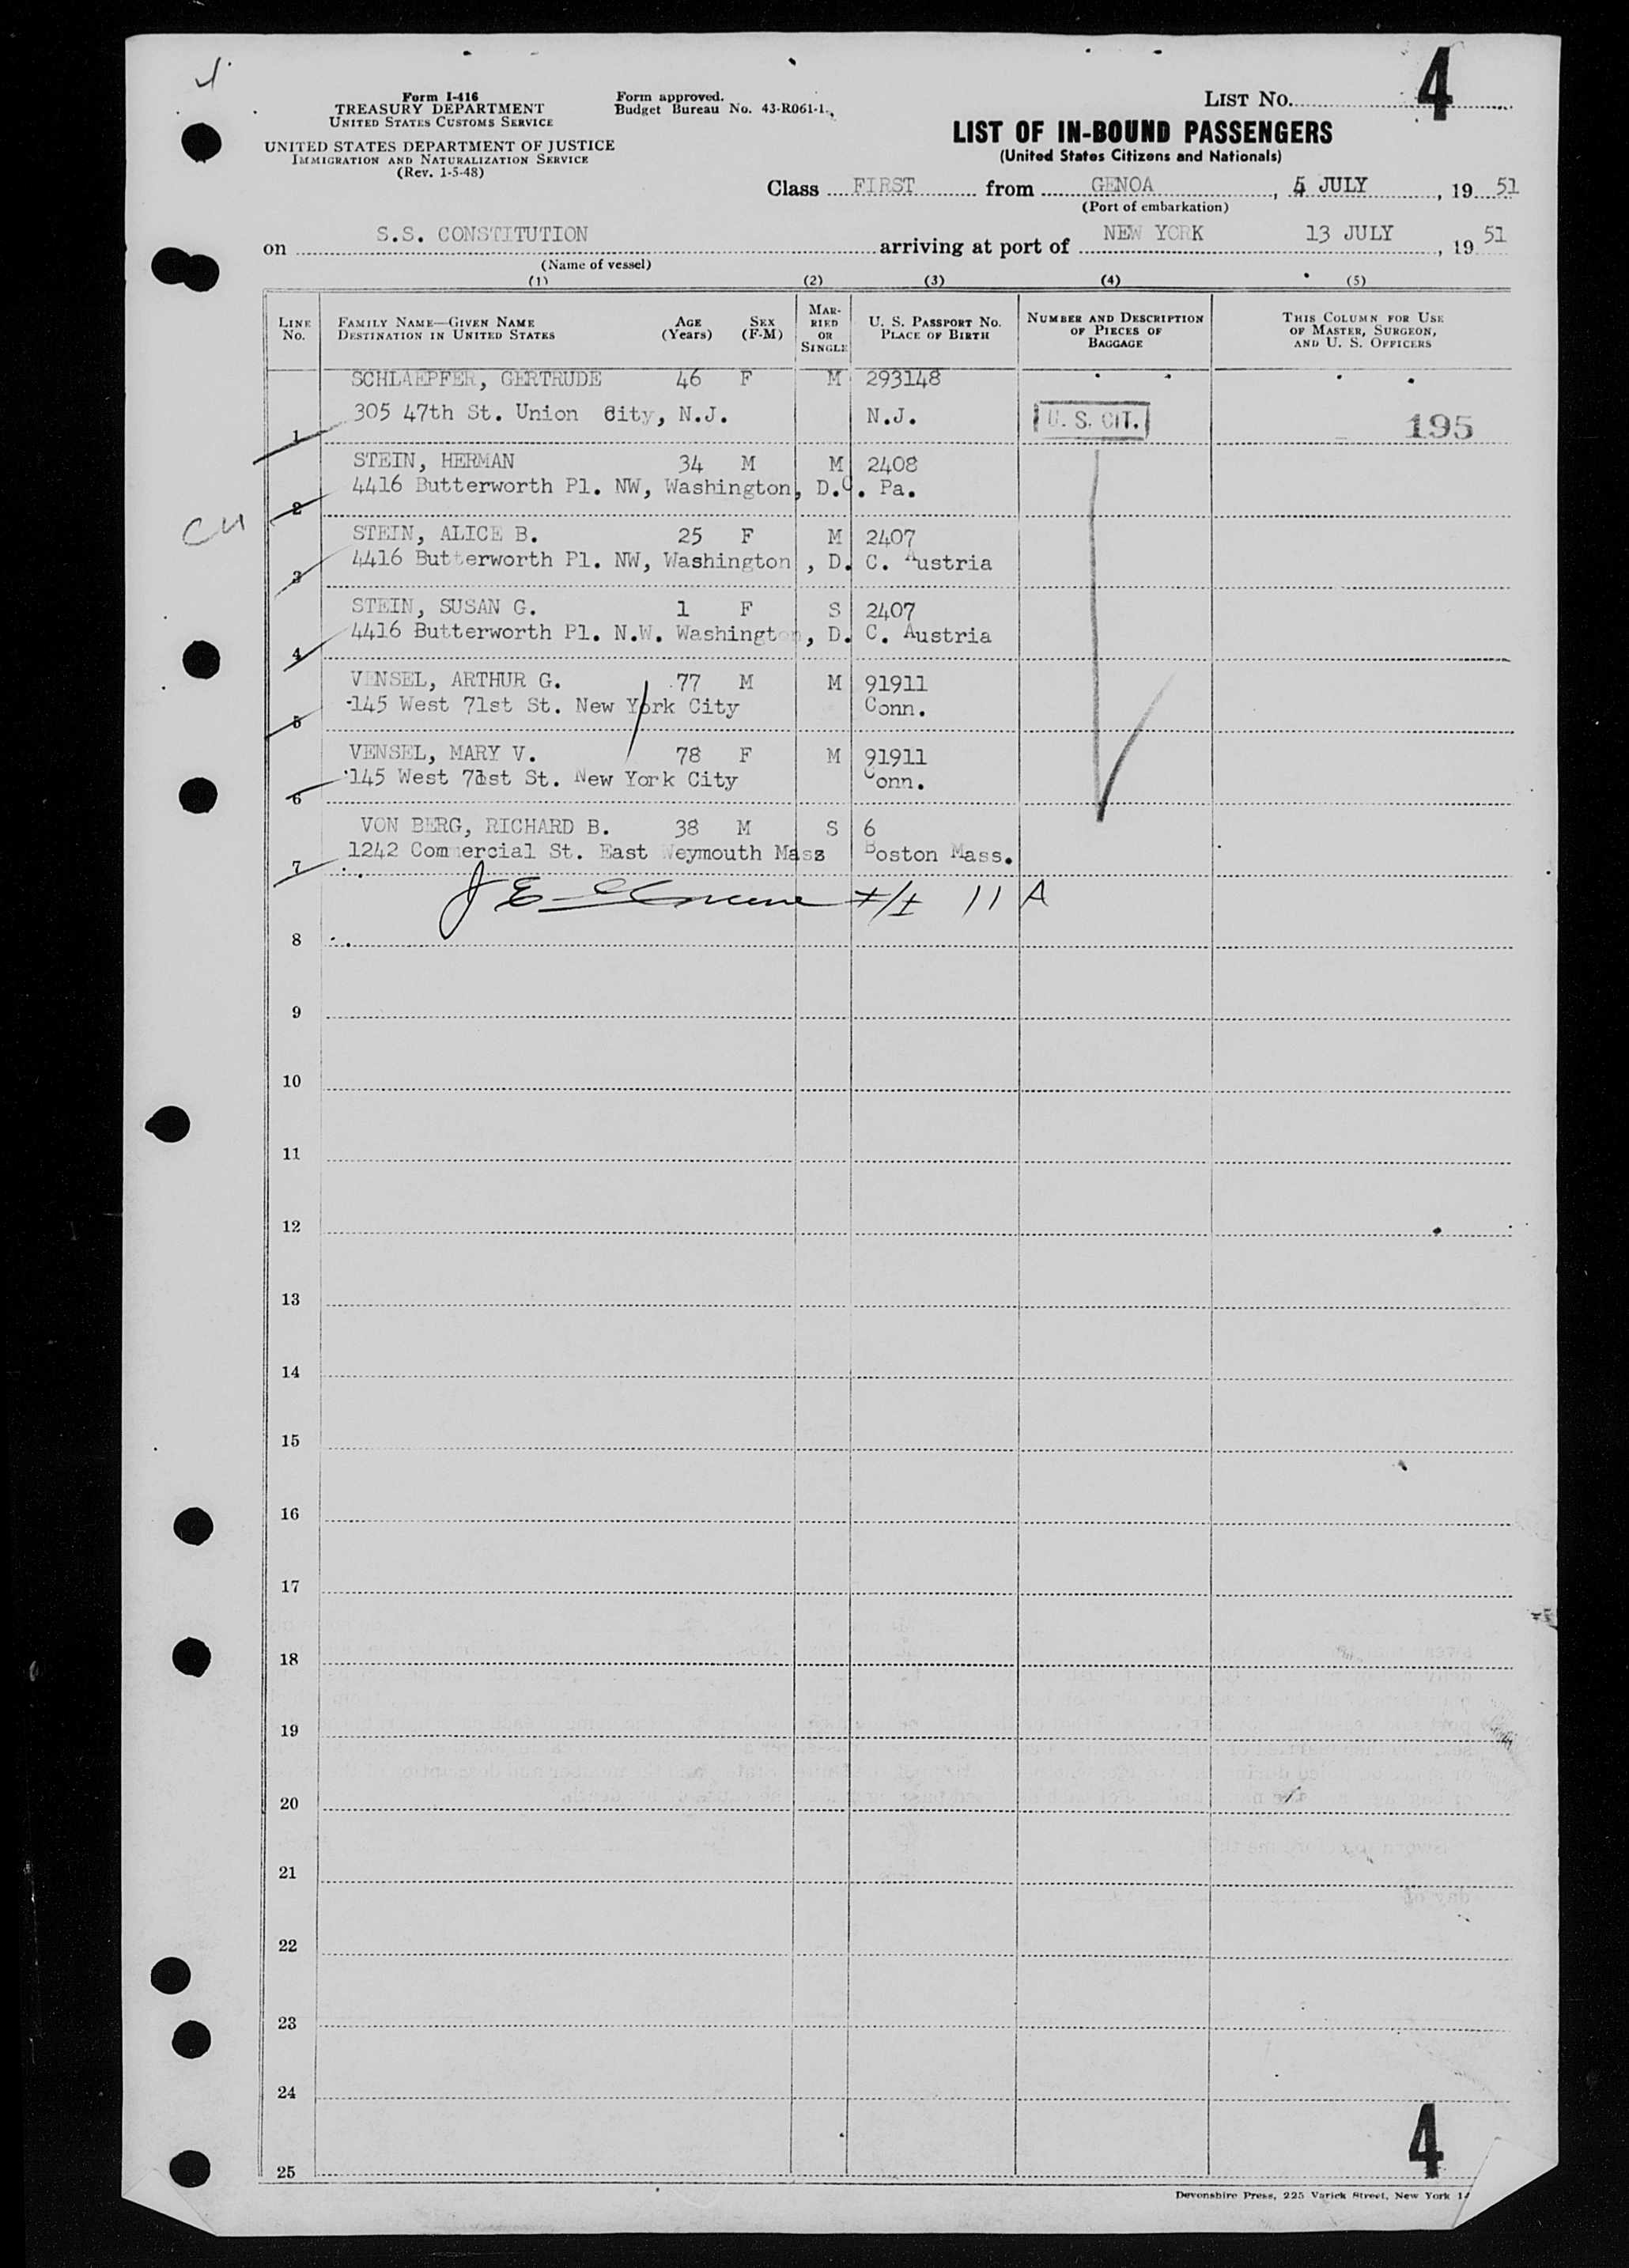 4
Form I-416
TREASURY DEPARTMENT
UNITED STATES CUSTOMS SERVICE
UNITED STATES DEPARTMENT OF JUSTICE
IMMIGRATION AND NATURALIZATION SERVICE
(Rev. 1-5-48)
Form approved.
Budget Bureau No. 43-R061-1.
LIST No. 4
LIST OF IN-BOUND PASSENGERS
(United States Citizens and Nationals)
Class FIRST from GENOA, 5 JULY, 19 51
(Port of embarkation)
on S.S. CONSTITUTION arriving at port of NEW YORK 13 JULY, 19 51
(Name of vessel)
(1) (2) (3) (4) (5)
LINE No. FAMILY NAME—GIVEN NAME DESTINATION IN UNITED STATES AGE (Years) SEX (F-M) MARRIED OR SINGLE U. S. PASSPORT NO. PLACE OF BIRTH NUMBER AND DESCRIPTION OF PIECES OF BAGGAGE THIS COLUMN FOR USE OF MASTER, SURGEON, AND U. S. OFFICERS
SCHLAEPFER, GERTRUDE 46 F M 293148
1 305 47th St. Union City, N.J. N.J. U. S. CIT. 195
STEIN, HERMAN 34 M M 2408
2 4416 Butterworth Pl. NW, Washington, D.C. Pa.
STEIN, ALICE B. 25 F M 2407
3 4416 Butterworth Pl. NW, Washington , D. C. Austria
STEIN, SUSAN G. 1 F S 2407
4 4416 Butterworth Pl. N.W. Washington, D. C. Austria
VENSEL, ARTHUR G. 77 M M 91911
5 145 West 71st St. New York City Conn.
VENSEL, MARY V. 78 F M 91911
6 145 West 71st St. New York City Conn.
VON BERG, RICHARD B. 38 M S 6
7 1242 Commercial St. East Weymouth Mass Boston Mass.
11 A
8
9
10
11
12
13
14
15
16
17
18
19
20
21
22
23
24
4
25
Devonshire Press, 225 Varick Street, New York 14